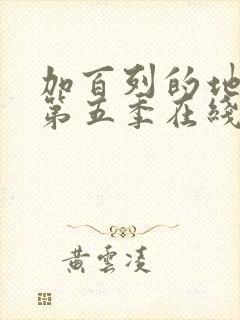 加百列的地
第五季在綫
黄雲凌